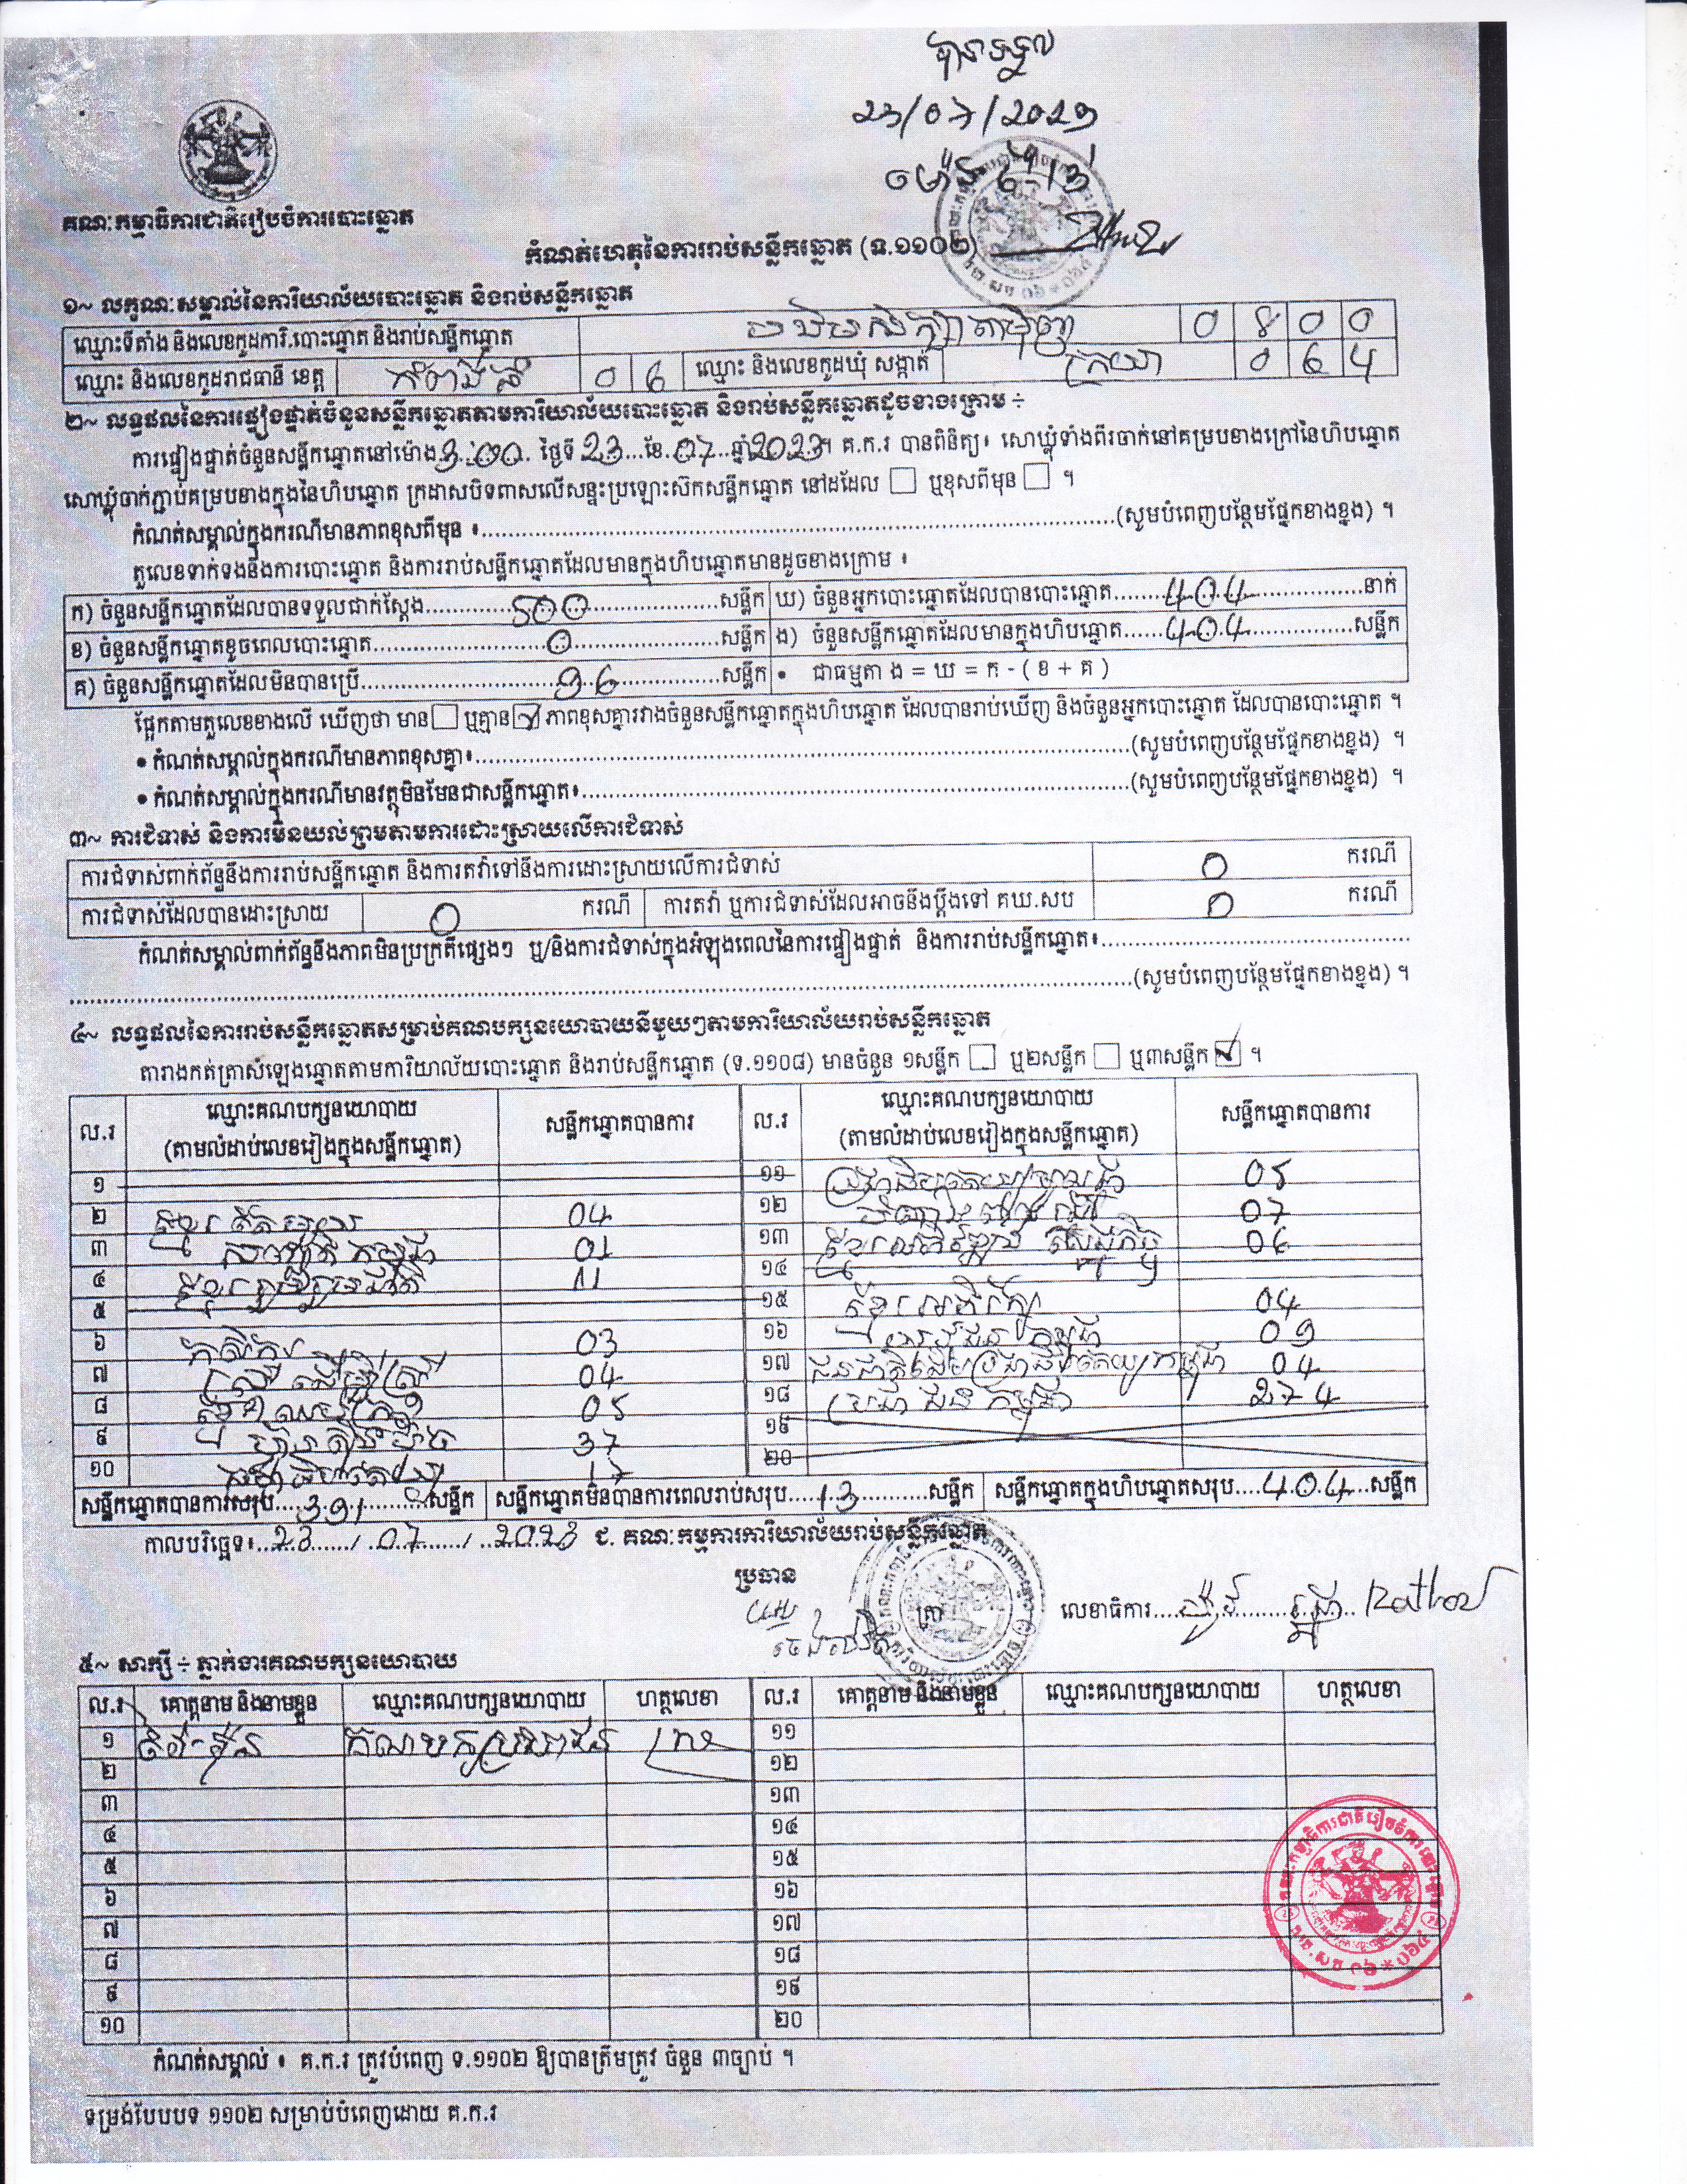 បានទទួល
23/07/2023
គណៈកម្មាធិការជាតិរៀបចំការបោះឆ្នោត
កំណត់ហេតុនៃការរាប់សន្លឹកឆ្នោត (ទ.១១០២)
១~ លក្ខណៈសម្គាល់នៃការិយាល័យបោះឆ្នោត និងរាប់សន្លឹកឆ្នោត
ឈ្មោះទីតាំង និងលេខកូដការិ.បោះឆ្នោត និងរាប់សន្លឹកឆ្នោត 0 4 0 0
ឈ្មោះ និងលេខកូដរាជធានី ខេត្ត កំពង់ធំ 0 6 ឈ្មោះ និងលេខកូដឃុំ សង្កាត់ ក្រយា 0 6 4
២~ លទ្ធផលនៃការផ្ទៀងផ្ទាត់ចំនួនសន្លឹកឆ្នោតតាមការិយាល័យបោះឆ្នោត និងរាប់សន្លឹកឆ្នោតដូចខាងក្រោម ÷
ការផ្ទៀងផ្ទាត់ចំនួនសន្លឹកឆ្នោតនៅម៉ោង 3:00 ថ្ងៃទី 23 ខែ 07 ឆ្នាំ 2023 ។ គ.ក.រ បានពិនិត្យ៖ សោឃ្លុំទាំងពីរចាក់នៅគម្របខាងក្រៅនៃហិបឆ្នោត
សោឃ្លុំចាក់ភ្ជាប់គម្របខាងក្នុងនៃហិបឆ្នោត ក្រដាសបិទពាសលើសន្ទះប្រឡោះស៊កសន្លឹកឆ្នោត នៅដដែល ☐ ឬខុសពីមុន ☐ ។
កំណត់សម្គាល់ក្នុងករណីមានភាពខុសពីមុន ៖ (សូមបំពេញបន្ថែមផ្នែកខាងខ្នង) ។
តួលេខទាក់ទងនឹងការបោះឆ្នោត និងការរាប់សន្លឹកឆ្នោតដែលមានក្នុងហិបឆ្នោតមានដូចខាងក្រោម ៖
ក) ចំនួនសន្លឹកឆ្នោតដែលបានទទួលជាក់ស្តែង 500 សន្លឹក ឃ) ចំនួនអ្នកបោះឆ្នោតដែលបានបោះឆ្នោត 404 នាក់
ខ) ចំនួនសន្លឹកឆ្នោតខូចពេលបោះឆ្នោត 0 សន្លឹក ង) ចំនួនសន្លឹកឆ្នោតដែលមានក្នុងហិបឆ្នោត 404 សន្លឹក
គ) ចំនួនសន្លឹកឆ្នោតដែលមិនបានប្រើ 96 សន្លឹក • ជាធម្មតា ង = ឃ = ក - ( ខ + គ )
ផ្អែកតាមតួលេខខាងលើ ឃើញថា មាន ☐ ឬគ្មាន ☑ ភាពខុសគ្នារវាងចំនួនសន្លឹកឆ្នោតក្នុងហិបឆ្នោត ដែលបានរាប់ឃើញ និងចំនួនអ្នកបោះឆ្នោត ដែលបានបោះឆ្នោត ។
• កំណត់សម្គាល់ក្នុងករណីមានភាពខុសគ្នា៖ (សូមបំពេញបន្ថែមផ្នែកខាងខ្នង) ។
• កំណត់សម្គាល់ក្នុងករណីមានវត្ថុមិនមែនជាសន្លឹកឆ្នោត៖ (សូមបំពេញបន្ថែមផ្នែកខាងខ្នង) ។
៣~ ការជំទាស់ និងការមិនយល់ព្រមតាមការដោះស្រាយលើការជំទាស់
ការជំទាស់ពាក់ព័ន្ធនឹងការរាប់សន្លឹកឆ្នោត និងការតវ៉ាទៅនឹងការដោះស្រាយលើការជំទាស់ 0 ករណី
ការជំទាស់ដែលបានដោះស្រាយ 0 ករណី ការតវ៉ា ឬការជំទាស់ដែលអាចនឹងប្តឹងទៅ គឃ.សប 0 ករណី
កំណត់សម្គាល់ពាក់ព័ន្ធនឹងភាពមិនប្រក្រតីផ្សេងៗ ឬ/និងការជំទាស់ក្នុងអំឡុងពេលនៃការផ្ទៀងផ្ទាត់ និងការរាប់សន្លឹកឆ្នោត៖
(សូមបំពេញបន្ថែមផ្នែកខាងខ្នង) ។
៤~ លទ្ធផលនៃការរាប់សន្លឹកឆ្នោតសម្រាប់គណបក្សនយោបាយនីមួយៗតាមការិយាល័យរាប់សន្លឹកឆ្នោត
តារាងកត់ត្រាសំឡេងឆ្នោតតាមការិយាល័យបោះឆ្នោត និងរាប់សន្លឹកឆ្នោត (ទ.១១០៨) មានចំនួន ១សន្លឹក ☐ ឬ២សន្លឹក ☐ ឬ៣សន្លឹក ☑ ។
ល.រ ឈ្មោះគណបក្សនយោបាយ (តាមលំដាប់លេខរៀងក្នុងសន្លឹកឆ្នោត) សន្លឹកឆ្នោតបានការ ល.រ ឈ្មោះគណបក្សនយោបាយ (តាមលំដាប់លេខរៀងក្នុងសន្លឹកឆ្នោត) សន្លឹកឆ្នោតបានការ
១ ១១ 05
២ 04 ១២ 07
៣ 01 ១៣ 06
៤ 11 ១៤
៥ ១៥ 04
៦ កសិករ 03 ១៦ 09
៧ 04 ១៧ 04
៨ 05 ១៨ ប្រជាជន កម្ពុជា 274
៩ ហ៊្វុនស៊ិនប៉ិច 37 ១៩
១០ 17 ២០
សន្លឹកឆ្នោតបានការសរុប 391 សន្លឹក សន្លឹកឆ្នោតមិនបានការពេលរាប់សរុប 13 សន្លឹក សន្លឹកឆ្នោតក្នុងហិបឆ្នោតសរុប 404 សន្លឹក
កាលបរិច្ឆេទ៖ 23 / 07 / 2023 ជ. គណៈកម្មការការិយាល័យរាប់សន្លឹកឆ្នោត
ប្រធាន
ត្រា លេខាធិការ
៥~ សាក្សី ÷ ភ្នាក់ងារគណបក្សនយោបាយ
ល.រ គោត្តនាម និងនាមខ្លួន ឈ្មោះគណបក្សនយោបាយ ហត្ថលេខា ល.រ គោត្តនាម និងនាមខ្លួន ឈ្មោះគណបក្សនយោបាយ ហត្ថលេខា
១ គណបក្សប្រជាជន ១១
២ ១២
៣ ១៣
៤ ១៤
៥ ១៥
៦ ១៦
៧ ១៧
៨ ១៨
៩ ១៩
១០ ២០
កំណត់សម្គាល់ ៖ គ.ក.រ ត្រូវបំពេញ ទ.១១០២ ឱ្យបានត្រឹមត្រូវ ចំនួន ៣ច្បាប់ ។
ទម្រង់បែបបទ ១១០២ សម្រាប់បំពេញដោយ គ.ក.រ